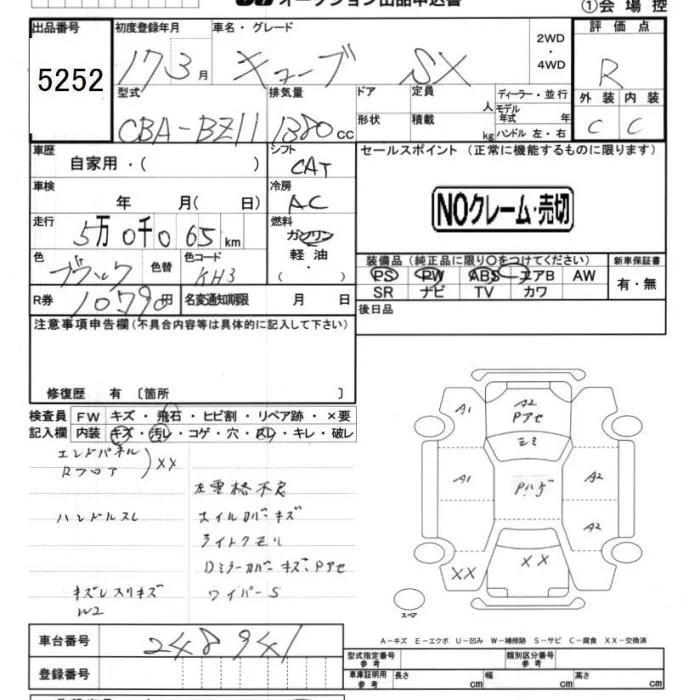 オークション出品申込書
①会場控
出品番号 初度登録年月 車名・グレード 2WD・4WD 評価点
5252 17 3月 キューブ SX R
型式 排気量 ドア 定員 人 ディーラー・並行 外装 内装
CBA-BZ11 1380cc 形状 積載 kg モデル年式 年 ハンドル 左・右 C C
車歴 シフト セールスポイント (正常に機能するものに限ります)
自家用・( ) CAT
車検 冷房 NOクレーム・売切
年 月( 日) AC
走行 燃料
5万0千065km ガソリン
色 色替 色コード 軽油・ 装備品(純正品に限り○をつけてください) 新車保証書
ブラック KH3 ( ) PS PW ABS エアB AW 有・無
R券 10590円 名変通知期限 月 日 SR ナビ TV カワ
後日品
注意事項申告欄(不具合内容等は具体的に記入して下さい)
修復歴 有 〔箇所 〕
検査員 FW キズ・飛石・ヒビ割・リペア跡・×要
記入欄 内装 キズ・汚レ・コゲ・穴・スレ・キレ・破レ
エンドパネル
Rフロア )XX
左電格不良
ハンドルスレ ホイルカバーキズ
ライトクモリ
Dミラーカバーキズ、Pアセ
キズレスリキズ ワイパーS
W2
A1 A2 Pアセ A1
ミミ
A1 Pハゲ A2
A2
XX XX
スマ
A-キズ E-エクボ U-凹み W-補修跡 S-サビ C-腐食 XX-交換済
車台番号 248941
型式指定番号 参考 類別区分番号 参考
登録番号 車庫証明用 参考 長さ cm 幅 cm 高さ cm